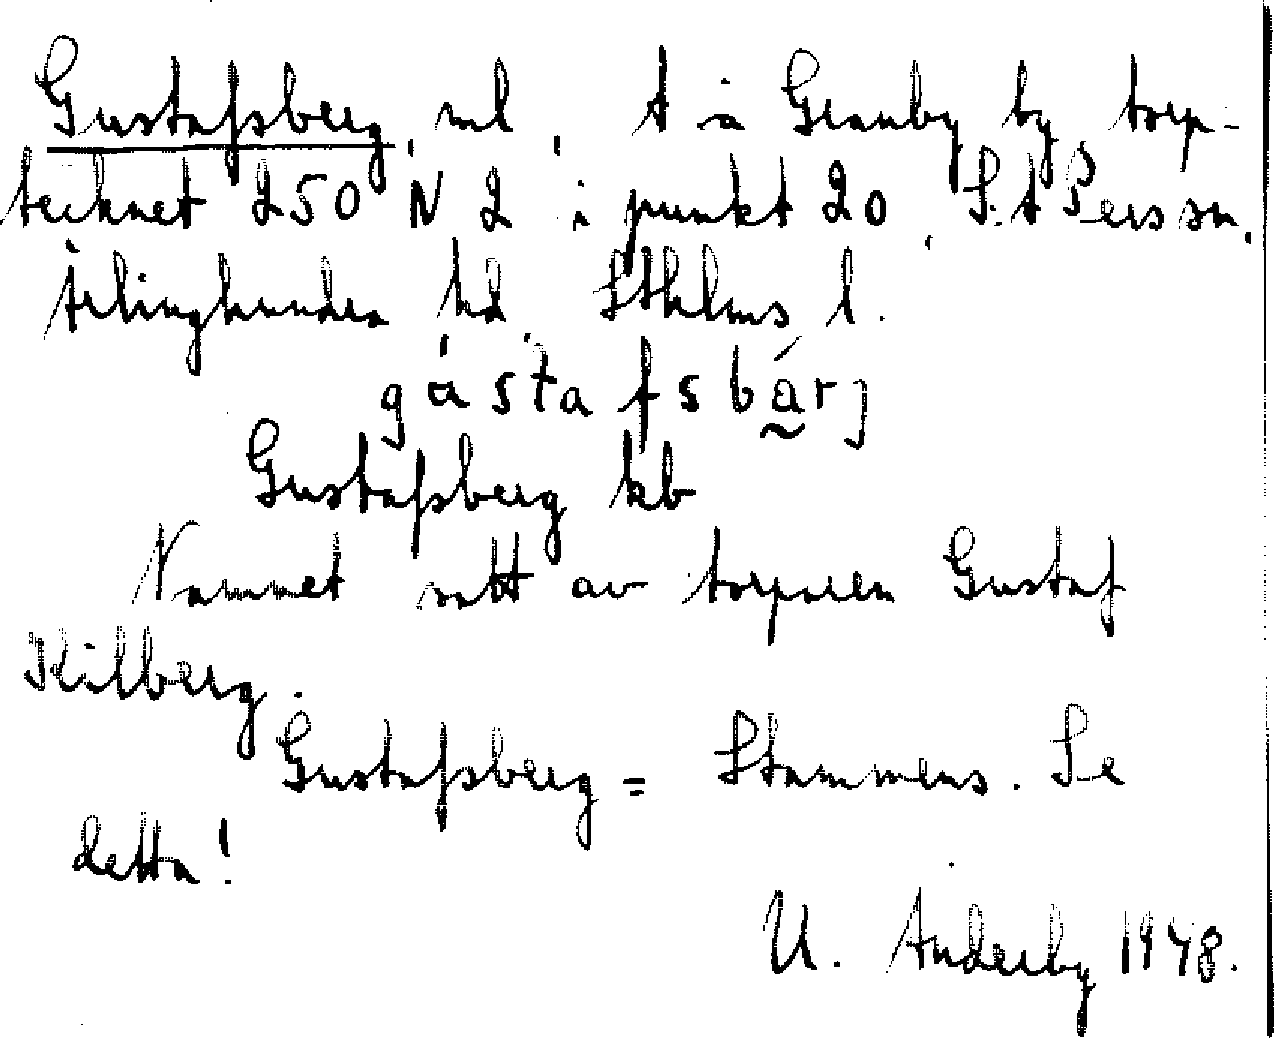 Gustafsberg, ml, t å Granby by, torp-
tecknet 250 N 2 i punkt 20, S:t Pers sn,
ärlinghundra hd, Sthlms l.
gástafsbärj
Gustafsberg kb
Namnet satt av torparen Gustaf
Kilberg.
Gustafsberg = Stammens. Se
detta!
U. Änderby 1948.